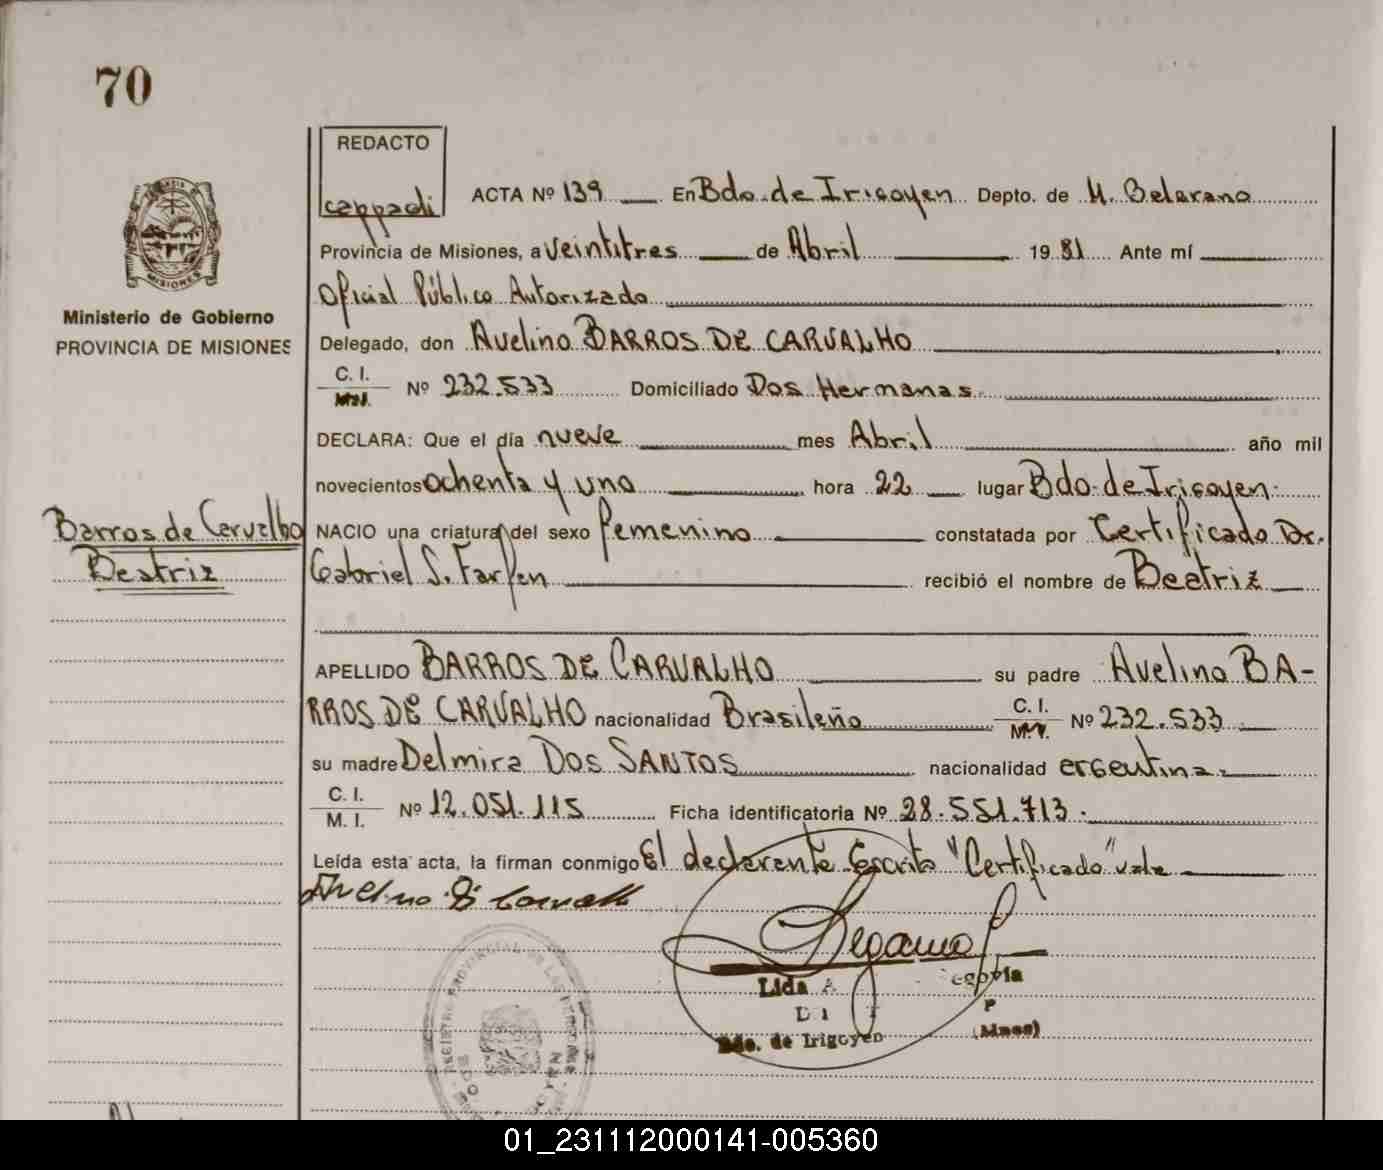 70
REDACTO
cappadi
ACTA Nº 139 En Bdo. de Irigoyen Depto. de M. Belgrano
Provincia de Misiones, a veintitres de Abril 1981 Ante mí
Oficial Público Autorizado
MISIONES
Ministerio de Gobierno
PROVINCIA DE MISIONES
Delegado, don Avelino BARROS DE CARVALHO
C. I. Nº 232.533 Domiciliado Dos Hermanas
DECLARA: Que el día nueve mes Abril año mil
novecientos ochenta y uno hora 22 lugar Bdo. de Irigoyen.
Barros de Carvalho
Beatriz
NACIO una criatura del sexo femenino constatada por Certificado Dr.
Gabriel S. Farfen recibió el nombre de Beatriz
APELLIDO BARROS DE CARVALHO su padre Avelino BA-
RROS DE CARVALHO nacionalidad Brasileño C. I. Nº 232.533
su madre Delmira DOS SANTOS nacionalidad argentina.
C. I.
M. I. Nº 12.051.115 Ficha identificatoria Nº 28.551.713.
Leída esta acta, la firman conmigo El declarante Escrito "Certificado" vale
Lida A Segovia
Bdo. de Irigoyen (Mnes)
REGISTRO PROVINCIAL DE LAS PERSONAS
01_231112000141-005360